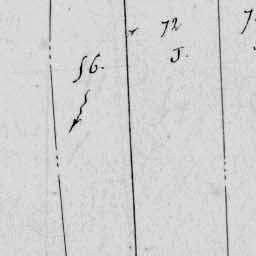 56.
72
J.